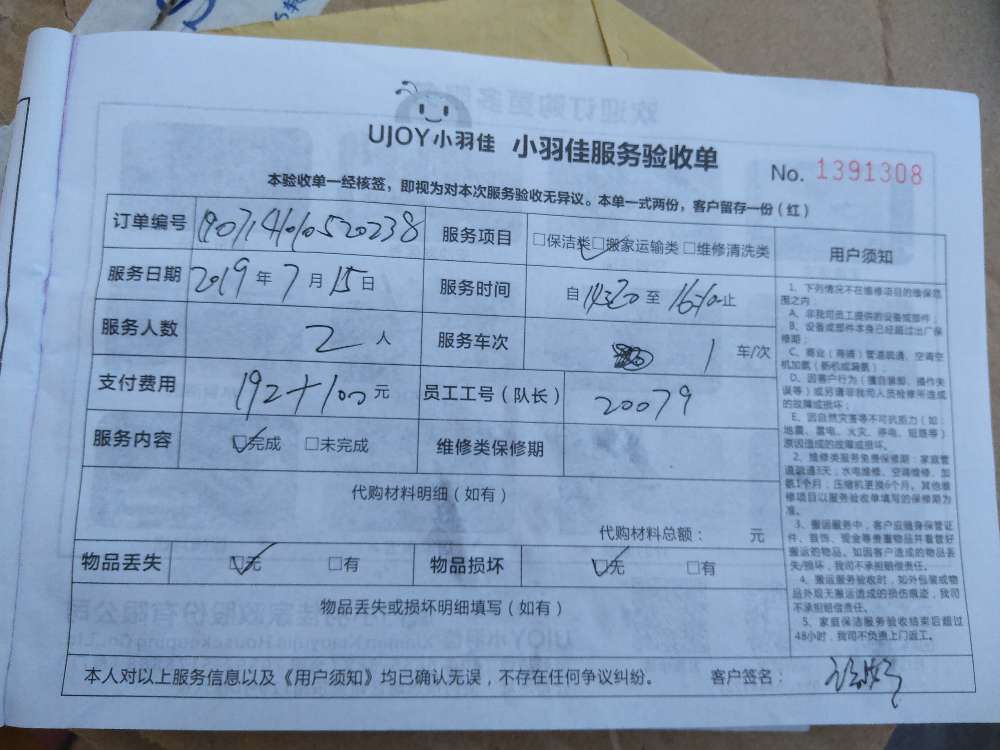 UJOY小羽佳 小羽佳服务验收单
No. 1391308
本验收单一经核签，即视为对本次服务验收无异议。本单一式两份，客户留存一份（红）
订单编号 190714010520238 服务项目 □保洁类 ☑搬家运输类 □维修清洗类
服务日期 2019年7月15日 服务时间 自14:30至16:10止
服务人数 2人 服务车次 1 车/次
支付费用 192+100元 员工工号（队长） 20079
服务内容 ☑完成 □未完成 维修类保修期
代购材料明细（如有）
代购材料总额： 元
物品丢失 ☑无 □有 物品损坏 ☑无 □有
物品丢失或损坏明细填写（如有）
本人对以上服务信息以及《用户须知》均已确认无误，不存在任何争议纠纷。 客户签名：
用户须知
1、下列情况不在维修项目的维保范
围之内：
A、非我司员工提供的设备或部件；
B、设备或部件本身已经超过出厂保
修期；
C、商业（商铺）管道疏通、空调空
机加氨（新机或漏氨）；
D、因客户行为（擅自装卸、操作失
误等）或另请非我司人员检修所造成
的故障或损坏；
E、因自然灾害等不可抗质力（如：
地震、雷电、火灾、停电、短路等）
原因造成的故障或损坏。
2、维修类服务免费保修期：家庭管
道疏通3天；水电维修、空调维修、加
氨1个月；压缩机更换6个月。其他维
修项目以服务验收单填写的保修期为
准。
3、搬运服务中，客户应随身保管证
件、首饰、现金等贵重物品并看管好
搬运的物品。如因客户造成的物品丢
失/损坏，我司不承担赔偿责任。
4、搬运服务验收时，如外包装或物
品外观无搬运造成的损伤痕迹，我司
不承担赔偿责任。
5、家庭保洁服务验收结束后超过
48小时，我司不负责上门返工。